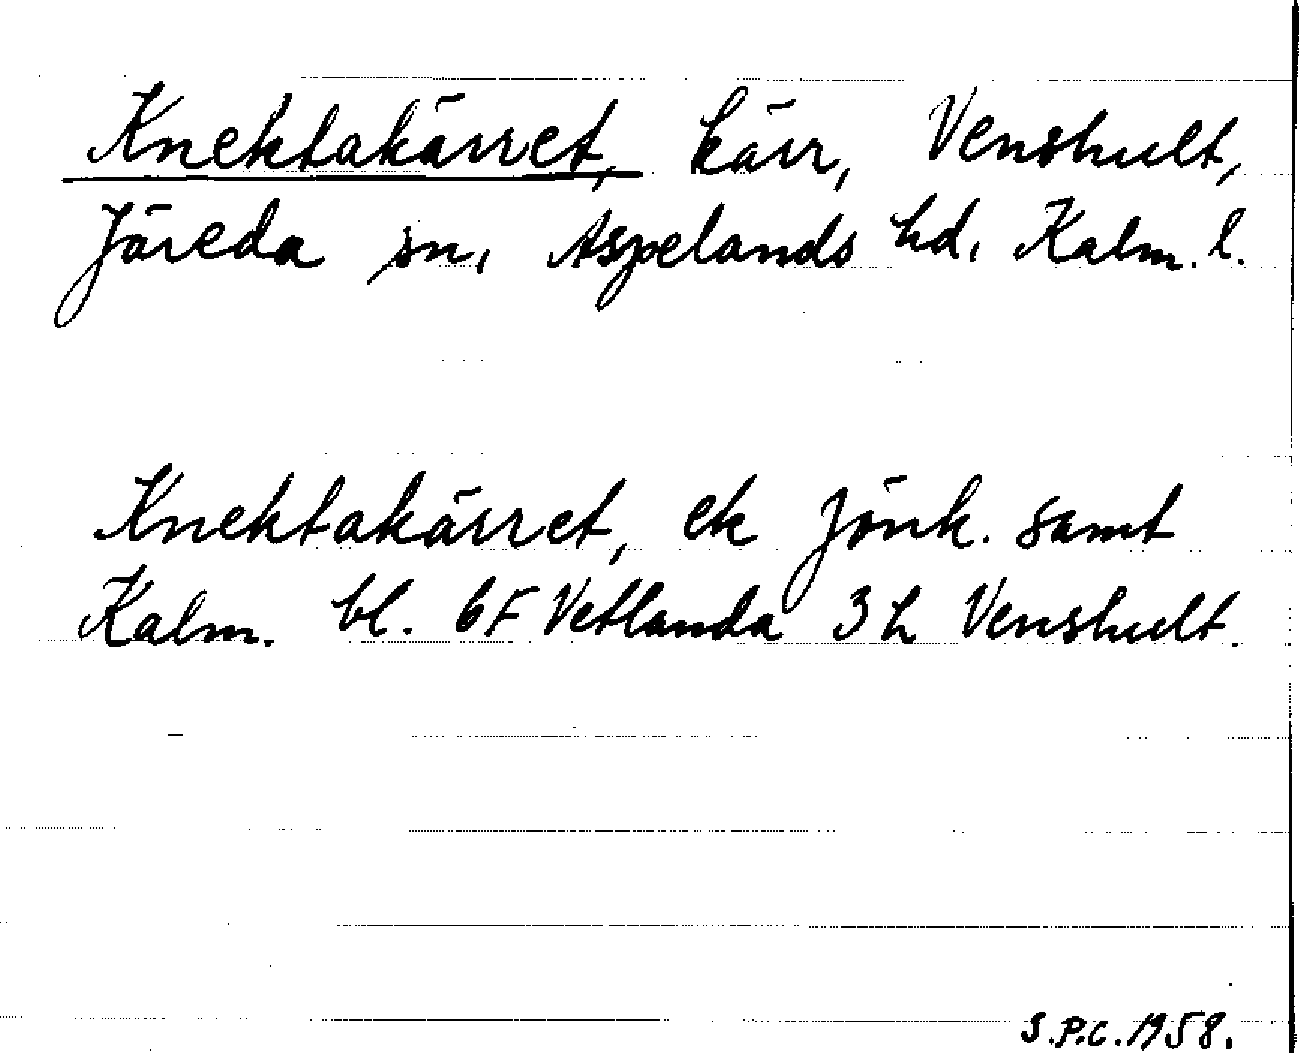 Knektakärret, kärr, Venshult,
Järeda sn, Aspelands hd, Kalm. l.
Knektakärret, ek Jönk. samt
Kalm. bl. 6F Vetlanda 3h Venshult.
S.P.C. 1958.